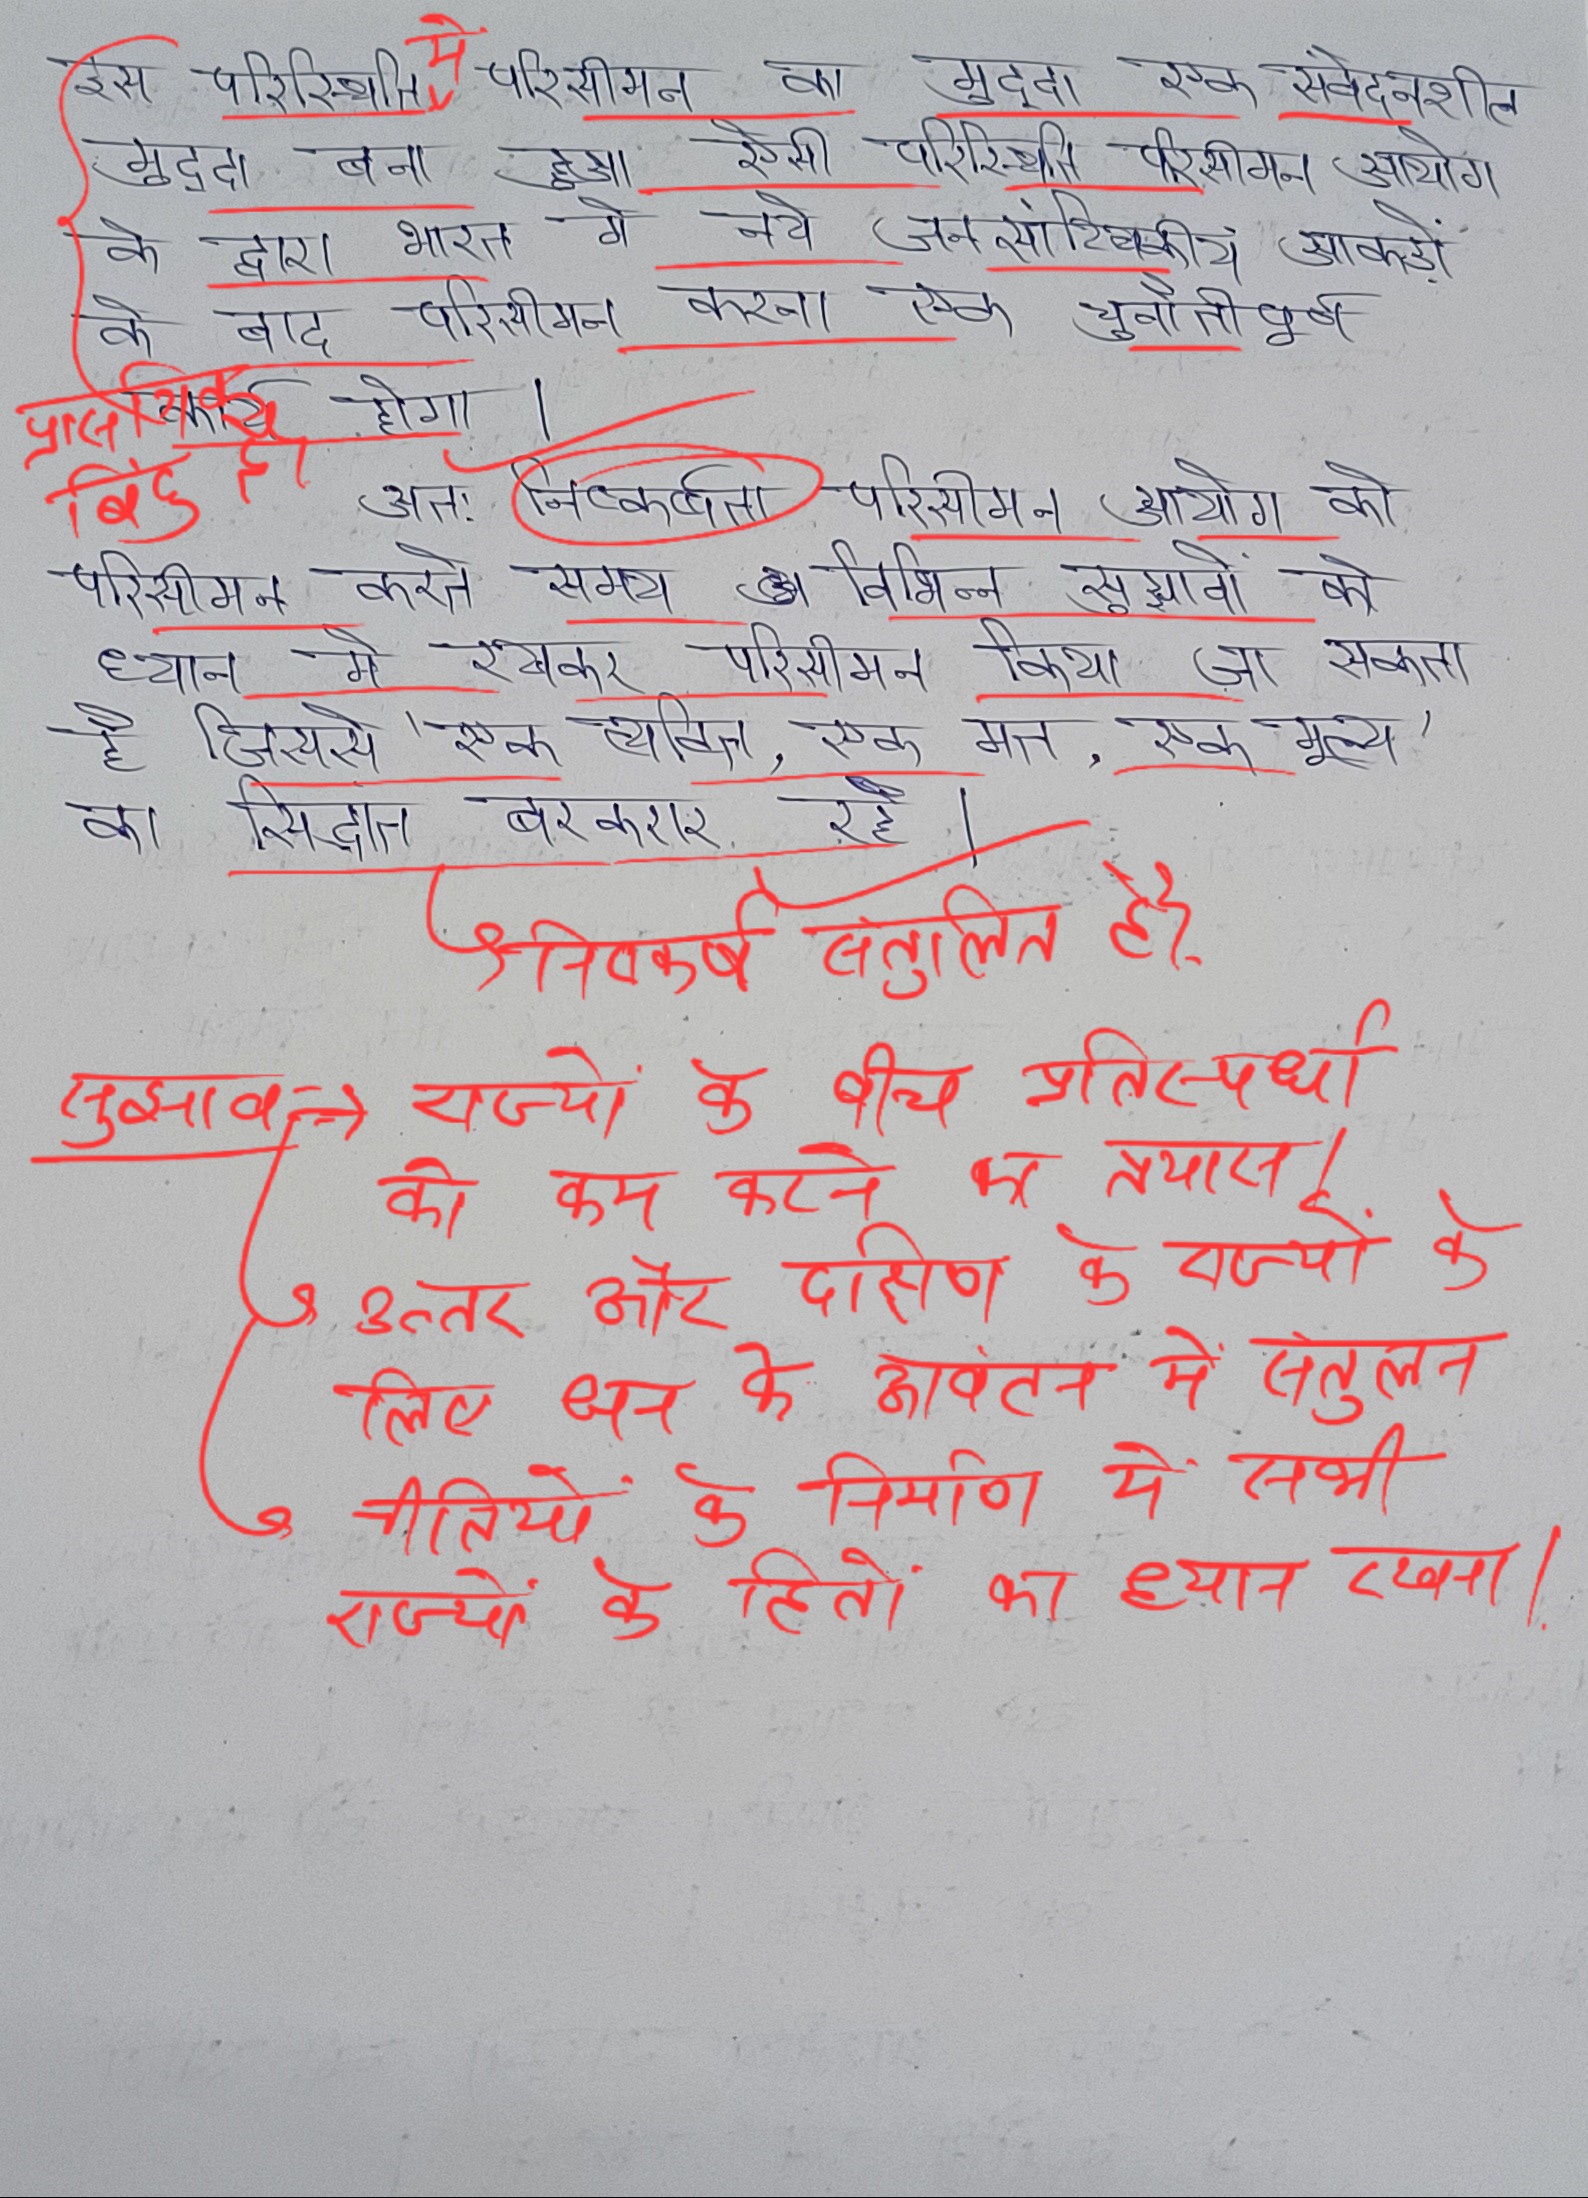 में
इस परिस्थिति परिसीमन का मुद्दा एक संवेदनशील
मुद्दा बना हुआ ऐसी परिस्थिति परिसीमन आयोग
के द्वारा भारत मे नये जनसांख्यिकीय आकड़ों
के बाद परिसीमन करना एक चुनौतीपूर्ण
कार्य होगा ।
प्रासंगिक
बिंदु है।
अतः निष्कर्षता परिसीमन आयोग को
परिसीमन करते समय विभिन्न सुझावों को
ध्यान मे रखकर परिसीमन किया जा सकता
है जिससे 'एक व्यक्ति, एक मत, एक मूल्य'
का सिद्धांत बरकरार रहे ।
निष्कर्ष संतुलित है।
सुझाव → राज्यों के बीच प्रतिस्पर्धा
को कम करने का प्रयास।
उत्तर और दक्षिण के राज्यों के
लिए धन के आवंटन में संतुलन
नीतियों के निर्माण में सभी
राज्यों के हितों का ध्यान रखना।